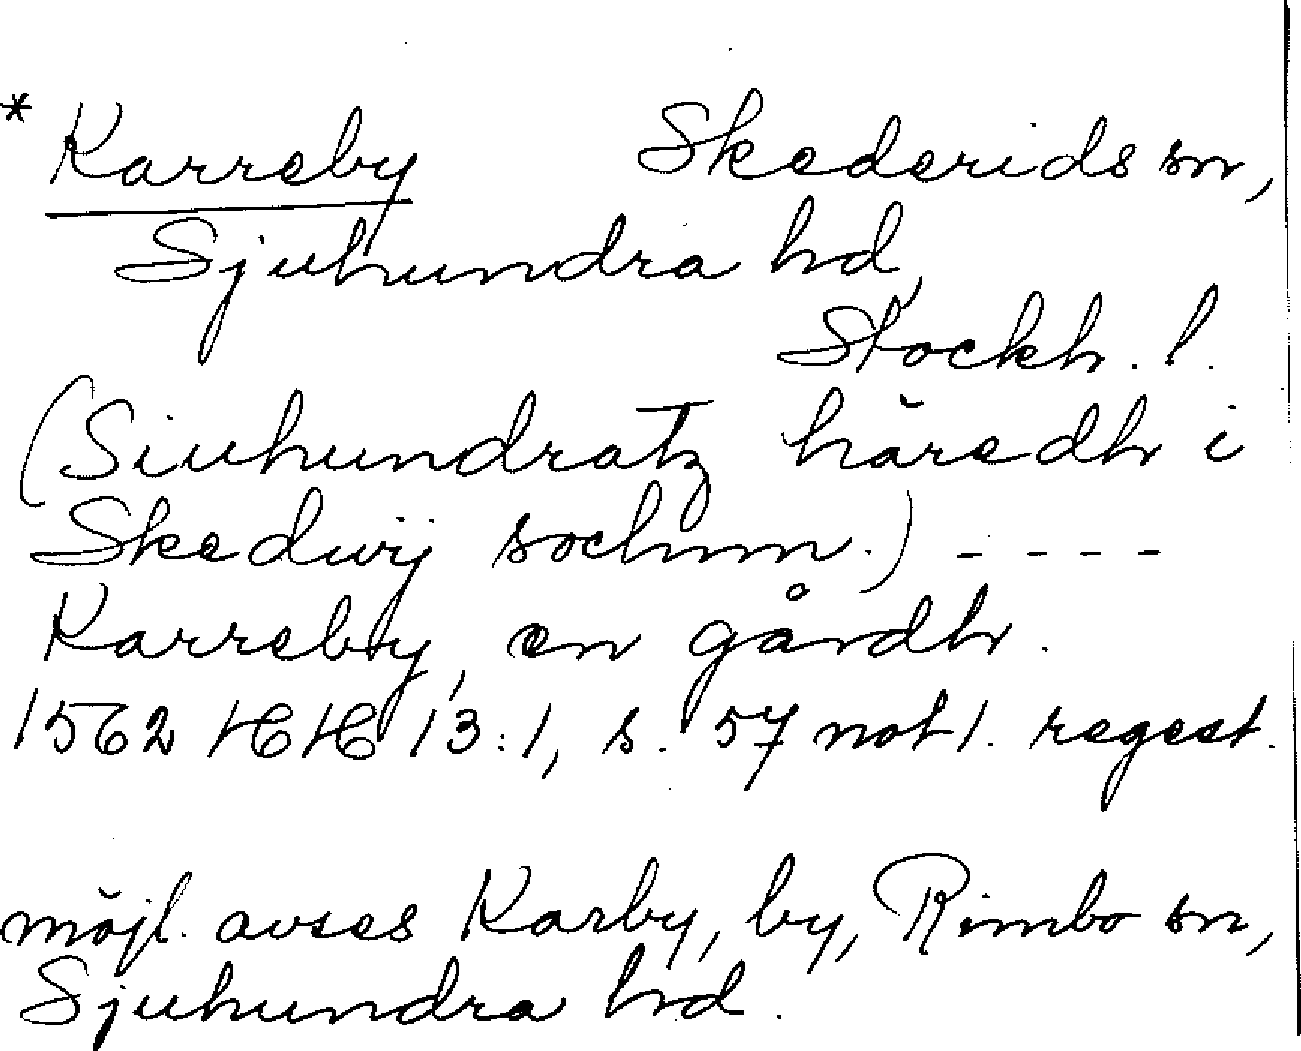 * Karreby Skederids sn,
Sjuhundra hd,
Stockh. l.
(Siuhundratz häredh i
Skedwij sochnn.) - - - -
Karreby, en gårdh.
1562 HH 13:1, s. 57 not 1. regest.
möjl. avses Karby, by, Rimbo sn,
Sjuhundra hd.